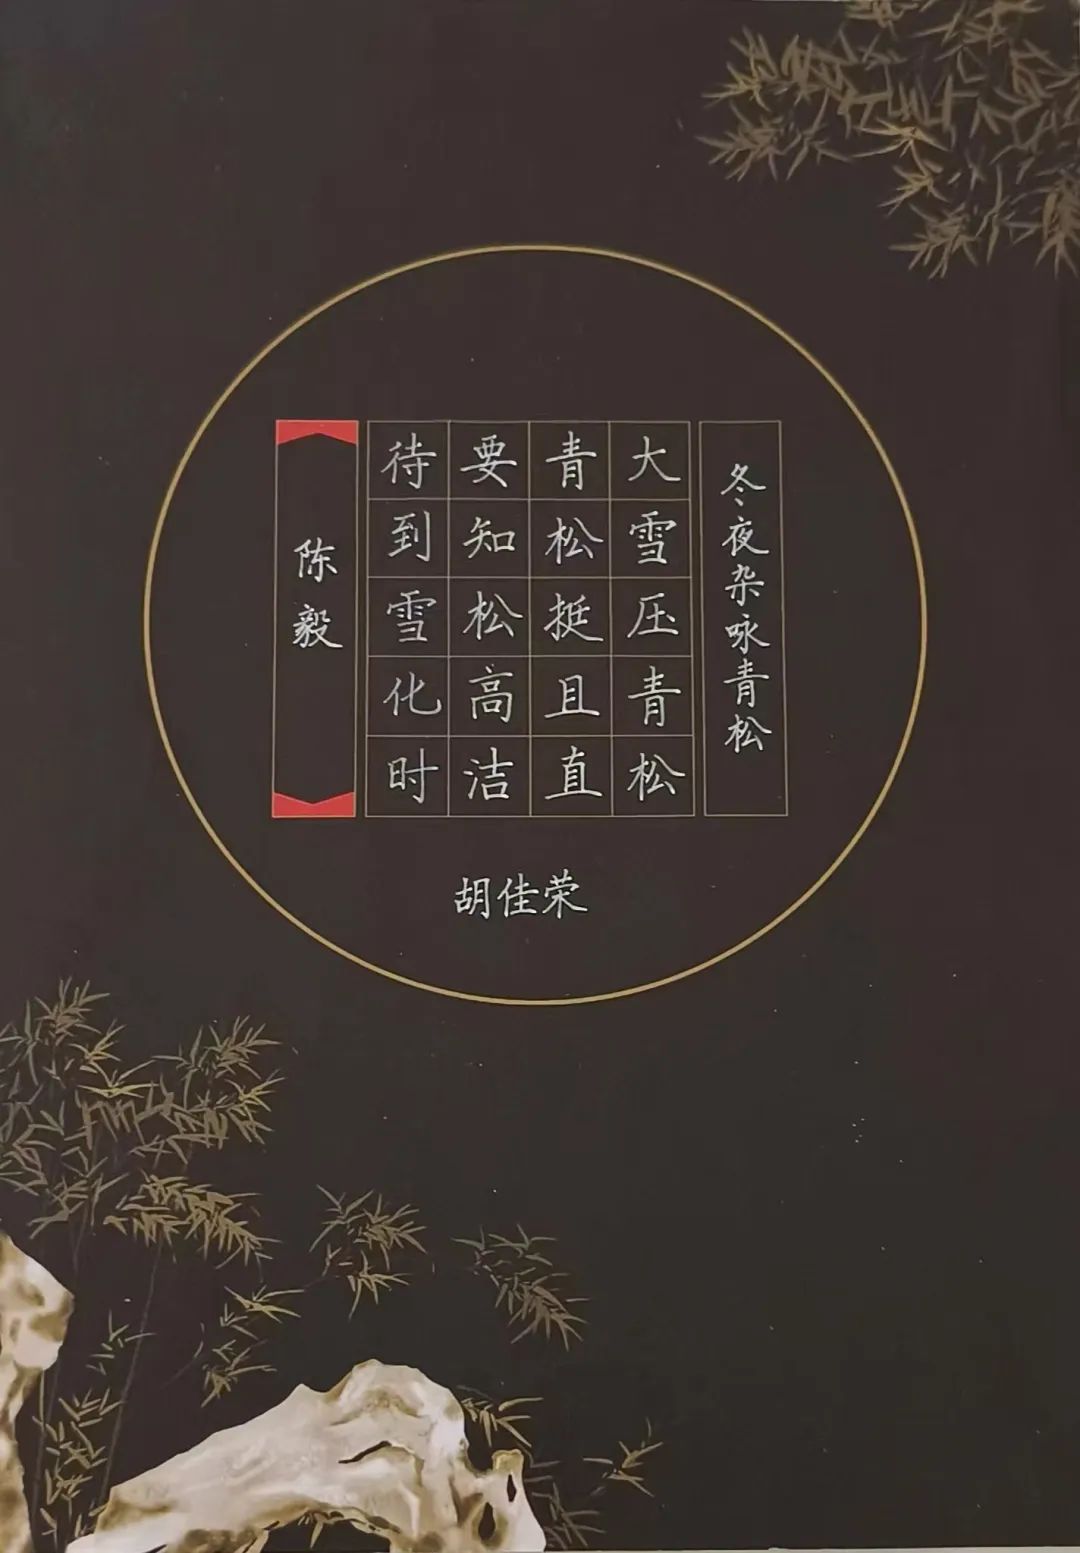 冬夜杂咏青松
大雪压青松
青松挺且直
要知松高洁
待到雪化时
陈毅
胡佳荣